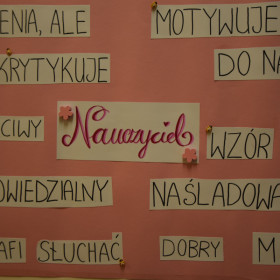 ENIA, ALE
MOTYWUJE
KRYTYKUJE
DO NA
Nauczyciel
CIWY
WZÓR
OWIEDZIALNY
NAŚLADOWA
AFI
SŁUCHAĆ
DOBRY
M